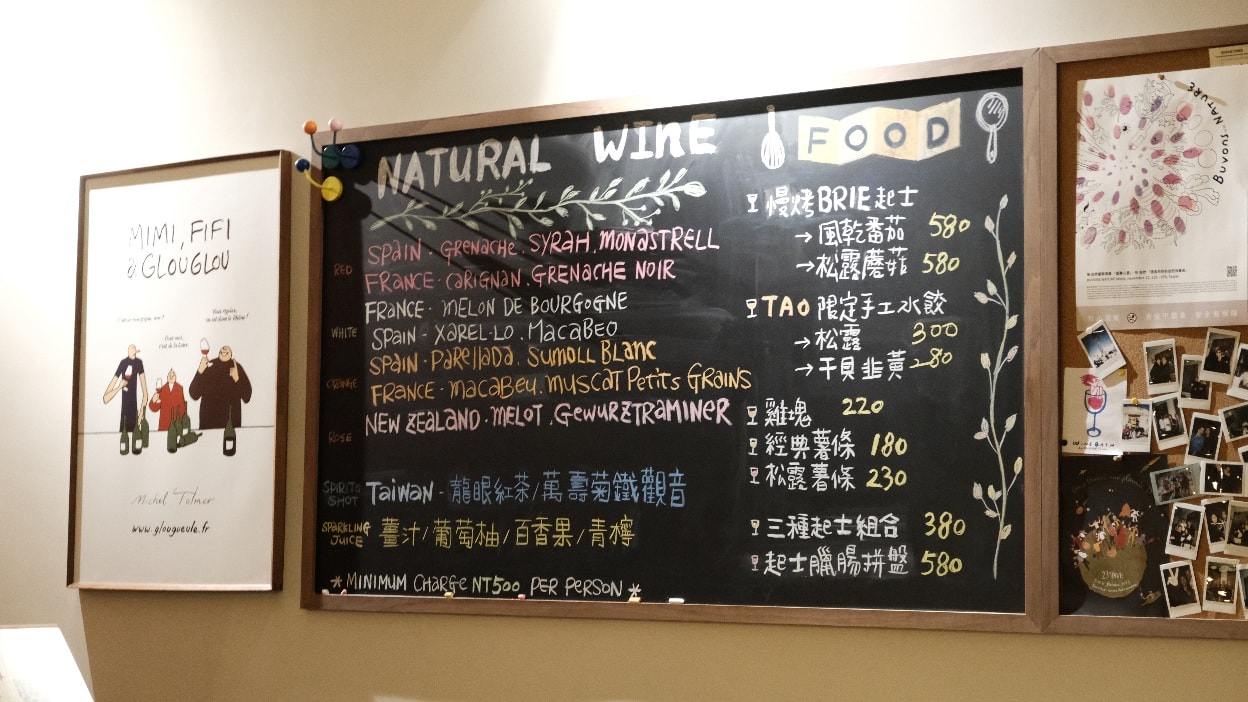 MIMI, FIFI
& GLOUGLOU
Michel Tolmer
www.glougueule.fr
NATURAL WINE
RED
SPAIN - GRENACHE. SYRAH. MONASTRELL
FRANCE - CARIGNAN. GRENACHE NOIR
WHITE
FRANCE - MELON DE BOURGOGNE
SPAIN - XAREL-LO. MACABEO
ORANGE
SPAIN - PARELLADA. SUMOLL BLANC
FRANCE - MACABEU. MUSCAT PETITS GRAINS
ROSE
NEW ZEALAND - MELOT. GEWURZTRAMINER
SPIRITS SHOT
TAIWAN - 龍眼紅茶/萬壽菊鐵觀音
SPARKLING JUICE
薑汁/葡萄柚/百香果/青檸
*MINIMUM CHARGE NT500 PER PERSON*
FOOD
慢烤BRIE起士
→風乾番茄 580
→松露蘑菇 580
TAO 限定手工水餃
→松露 300
→干貝韭黃 280
雞塊 220
經典薯條 180
松露薯條 230
三種起士組合 380
起士臘腸拼盤 580
BUVONS NATURE